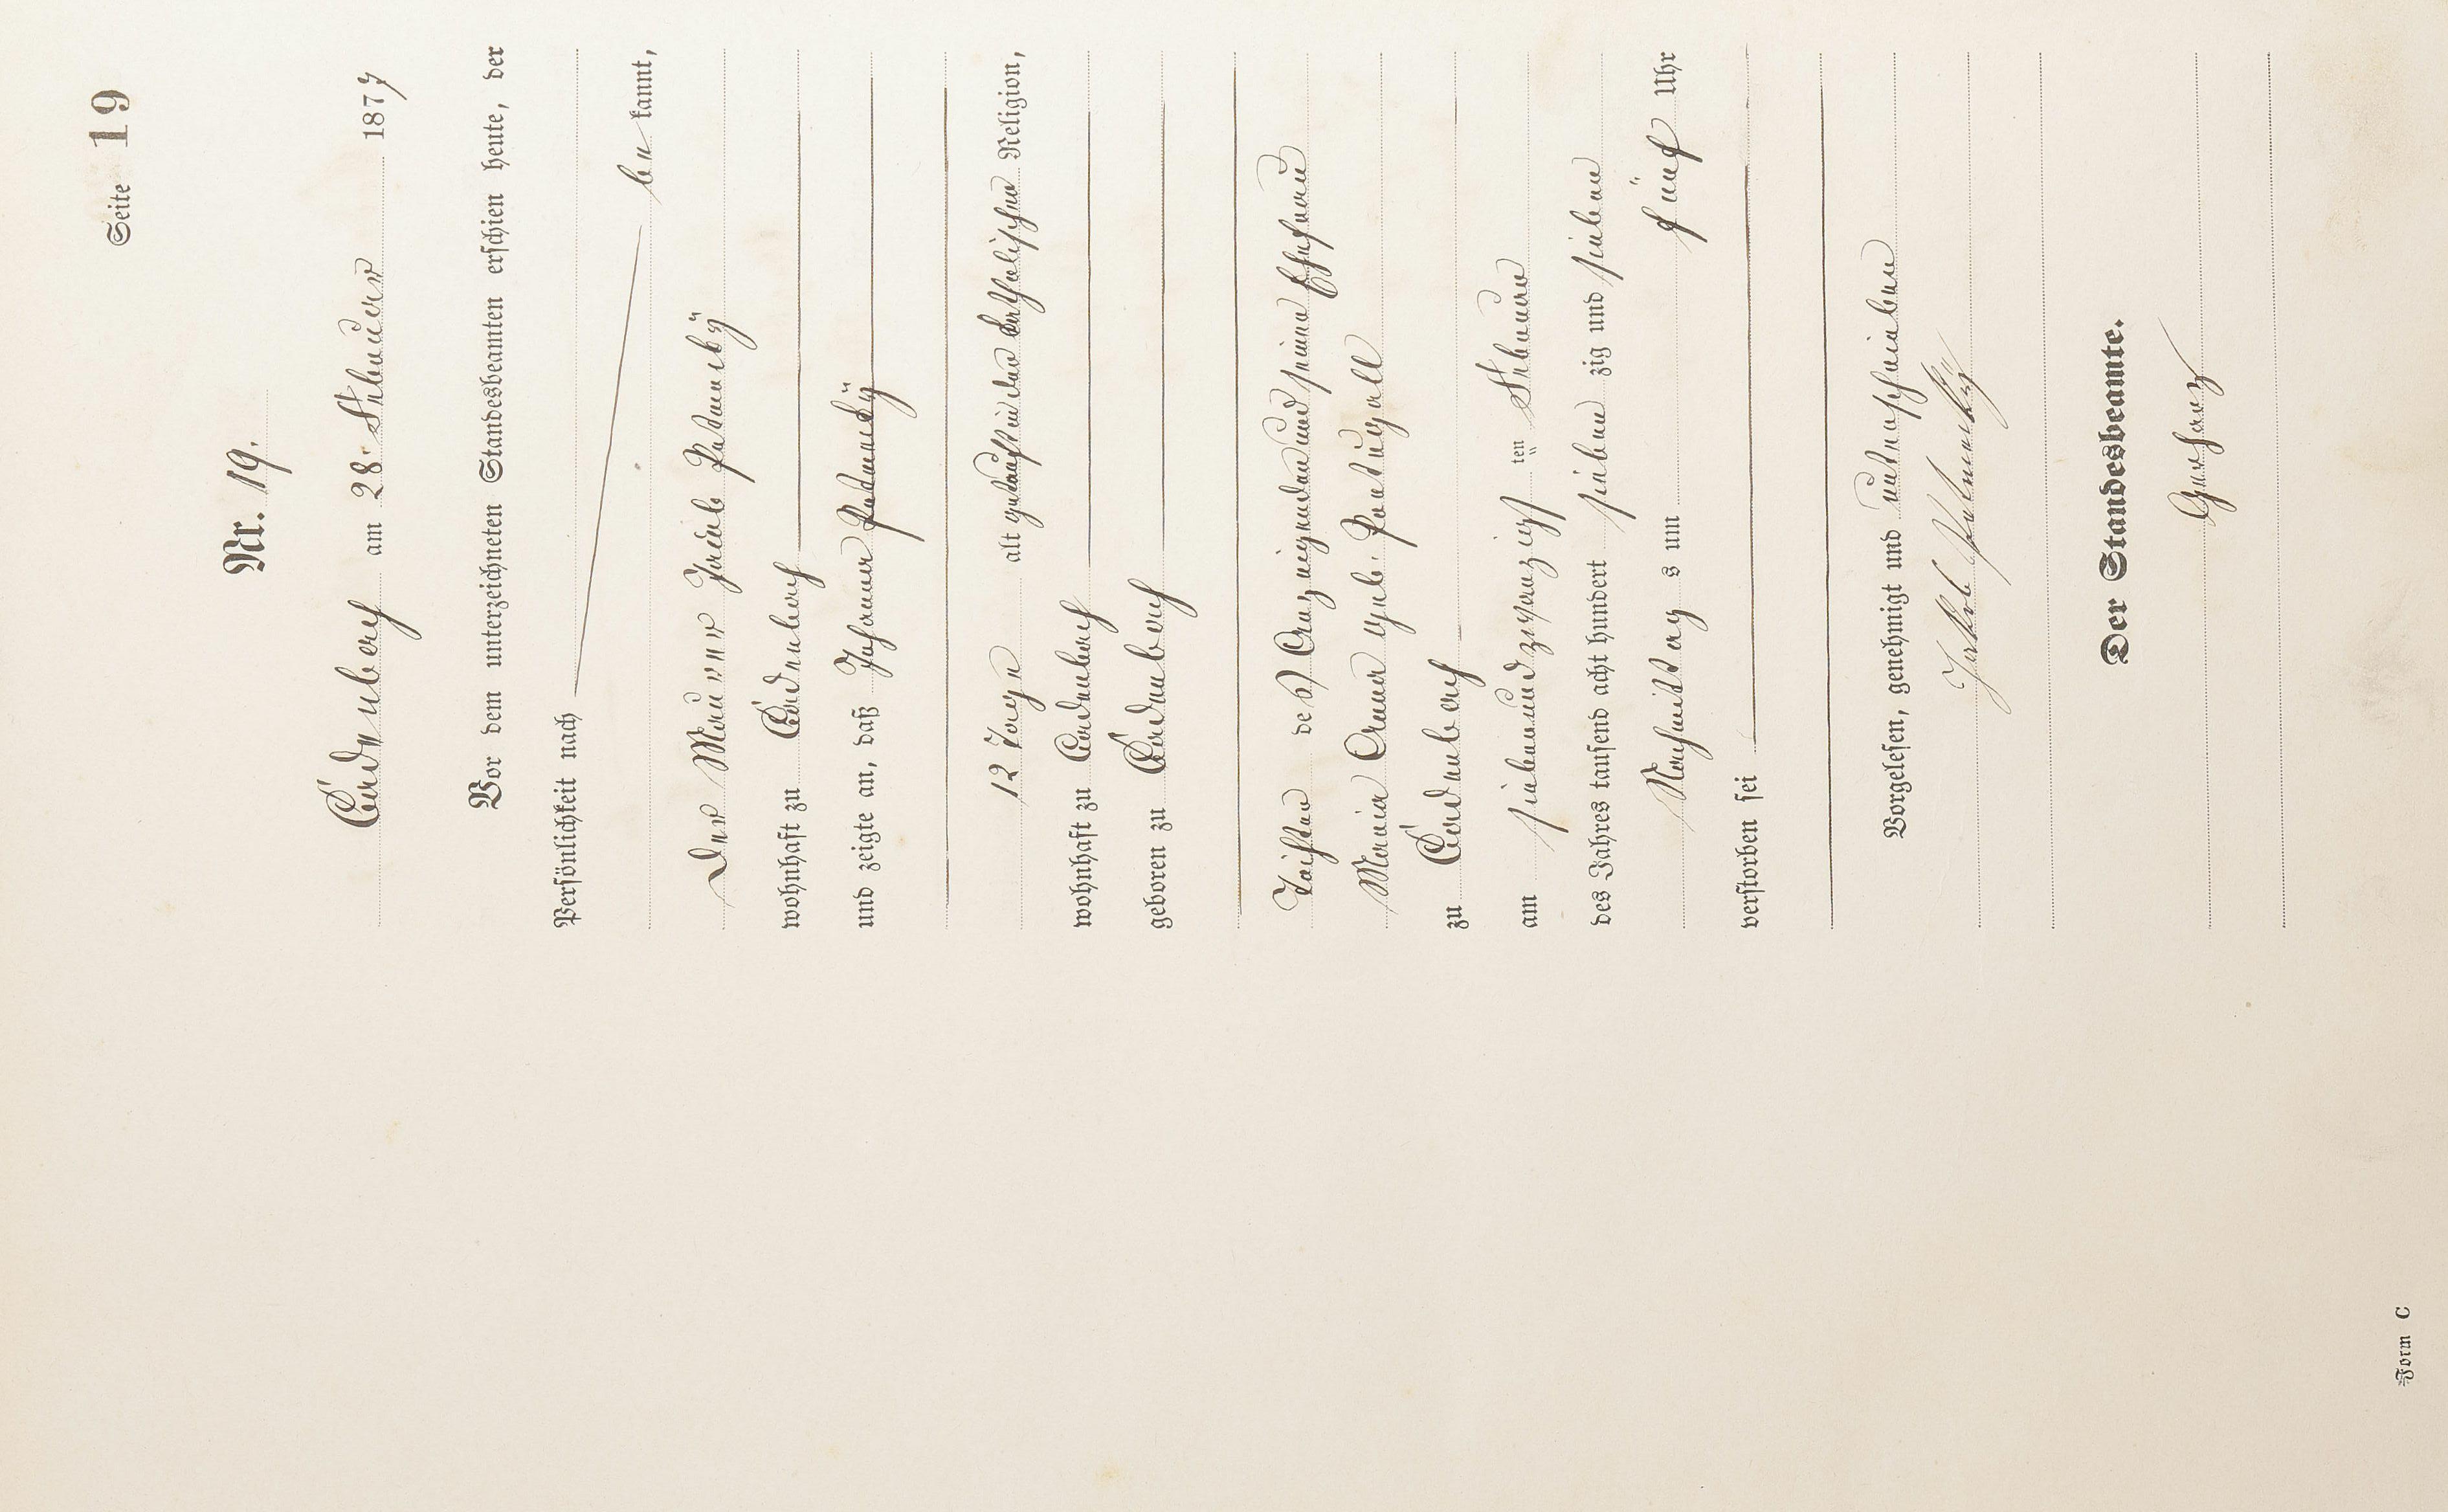 Seite 19
Nr. 19.
Cadenbach am 28. Februar 1877
Vor dem unterzeichneten Standesbeamten erschien heute, der
Persönlichkeit nach
be kannt,
der Maurer Jacob
wohnhaft zu Cadenbach
und zeigte an, daß Johanna
12 Tage alt katholischer Religion,
wohnhaft zu Cadenbach
geboren zu Cadenbach
Tochter des Anzeigenden und seiner Ehefrau
Maria Anna geb. Portugall
zu Cadenbach
am siebenundzwanzigsten Februar
des Jahres tausend acht hundert sieben zig und sieben
Nachmittag s um fünf Uhr
verstorben sei
Vorgelesen, genehmigt und unterschrieben
Jakob
Der Standesbeamte.
Form C